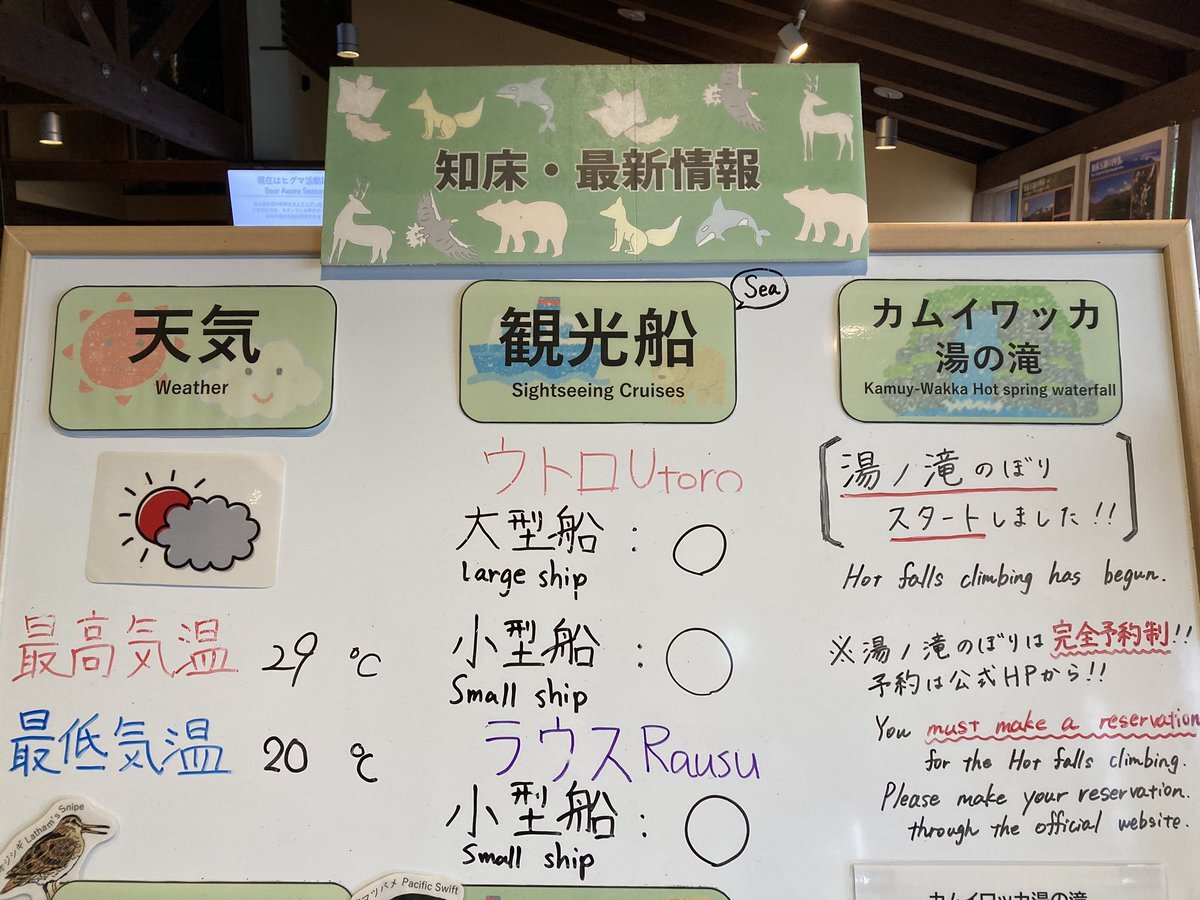 現在はヒグマ活動
Bear Aware Season
知床・最新情報
天気
Weather
最高気温 29℃
最低気温 20℃
Latham's Snipe
観光船
Sightseeing Cruises
Sea
ウトロUtoro
大型船：○
large ship
小型船：○
Small ship
ラウスRausu
小型船：○
Small ship
Pacific Swift
カムイワッカ
湯の滝
Kamuy-Wakka Hot spring waterfall
湯ノ滝のぼり
スタートしました!!
Hot falls climbing has begun.
※湯ノ滝のぼりは完全予約制!!
予約は公式HPから!!
You must make a reservation
for the Hot falls climbing.
Please make your reservation.
through the official website.
カムイワッカ湯の滝